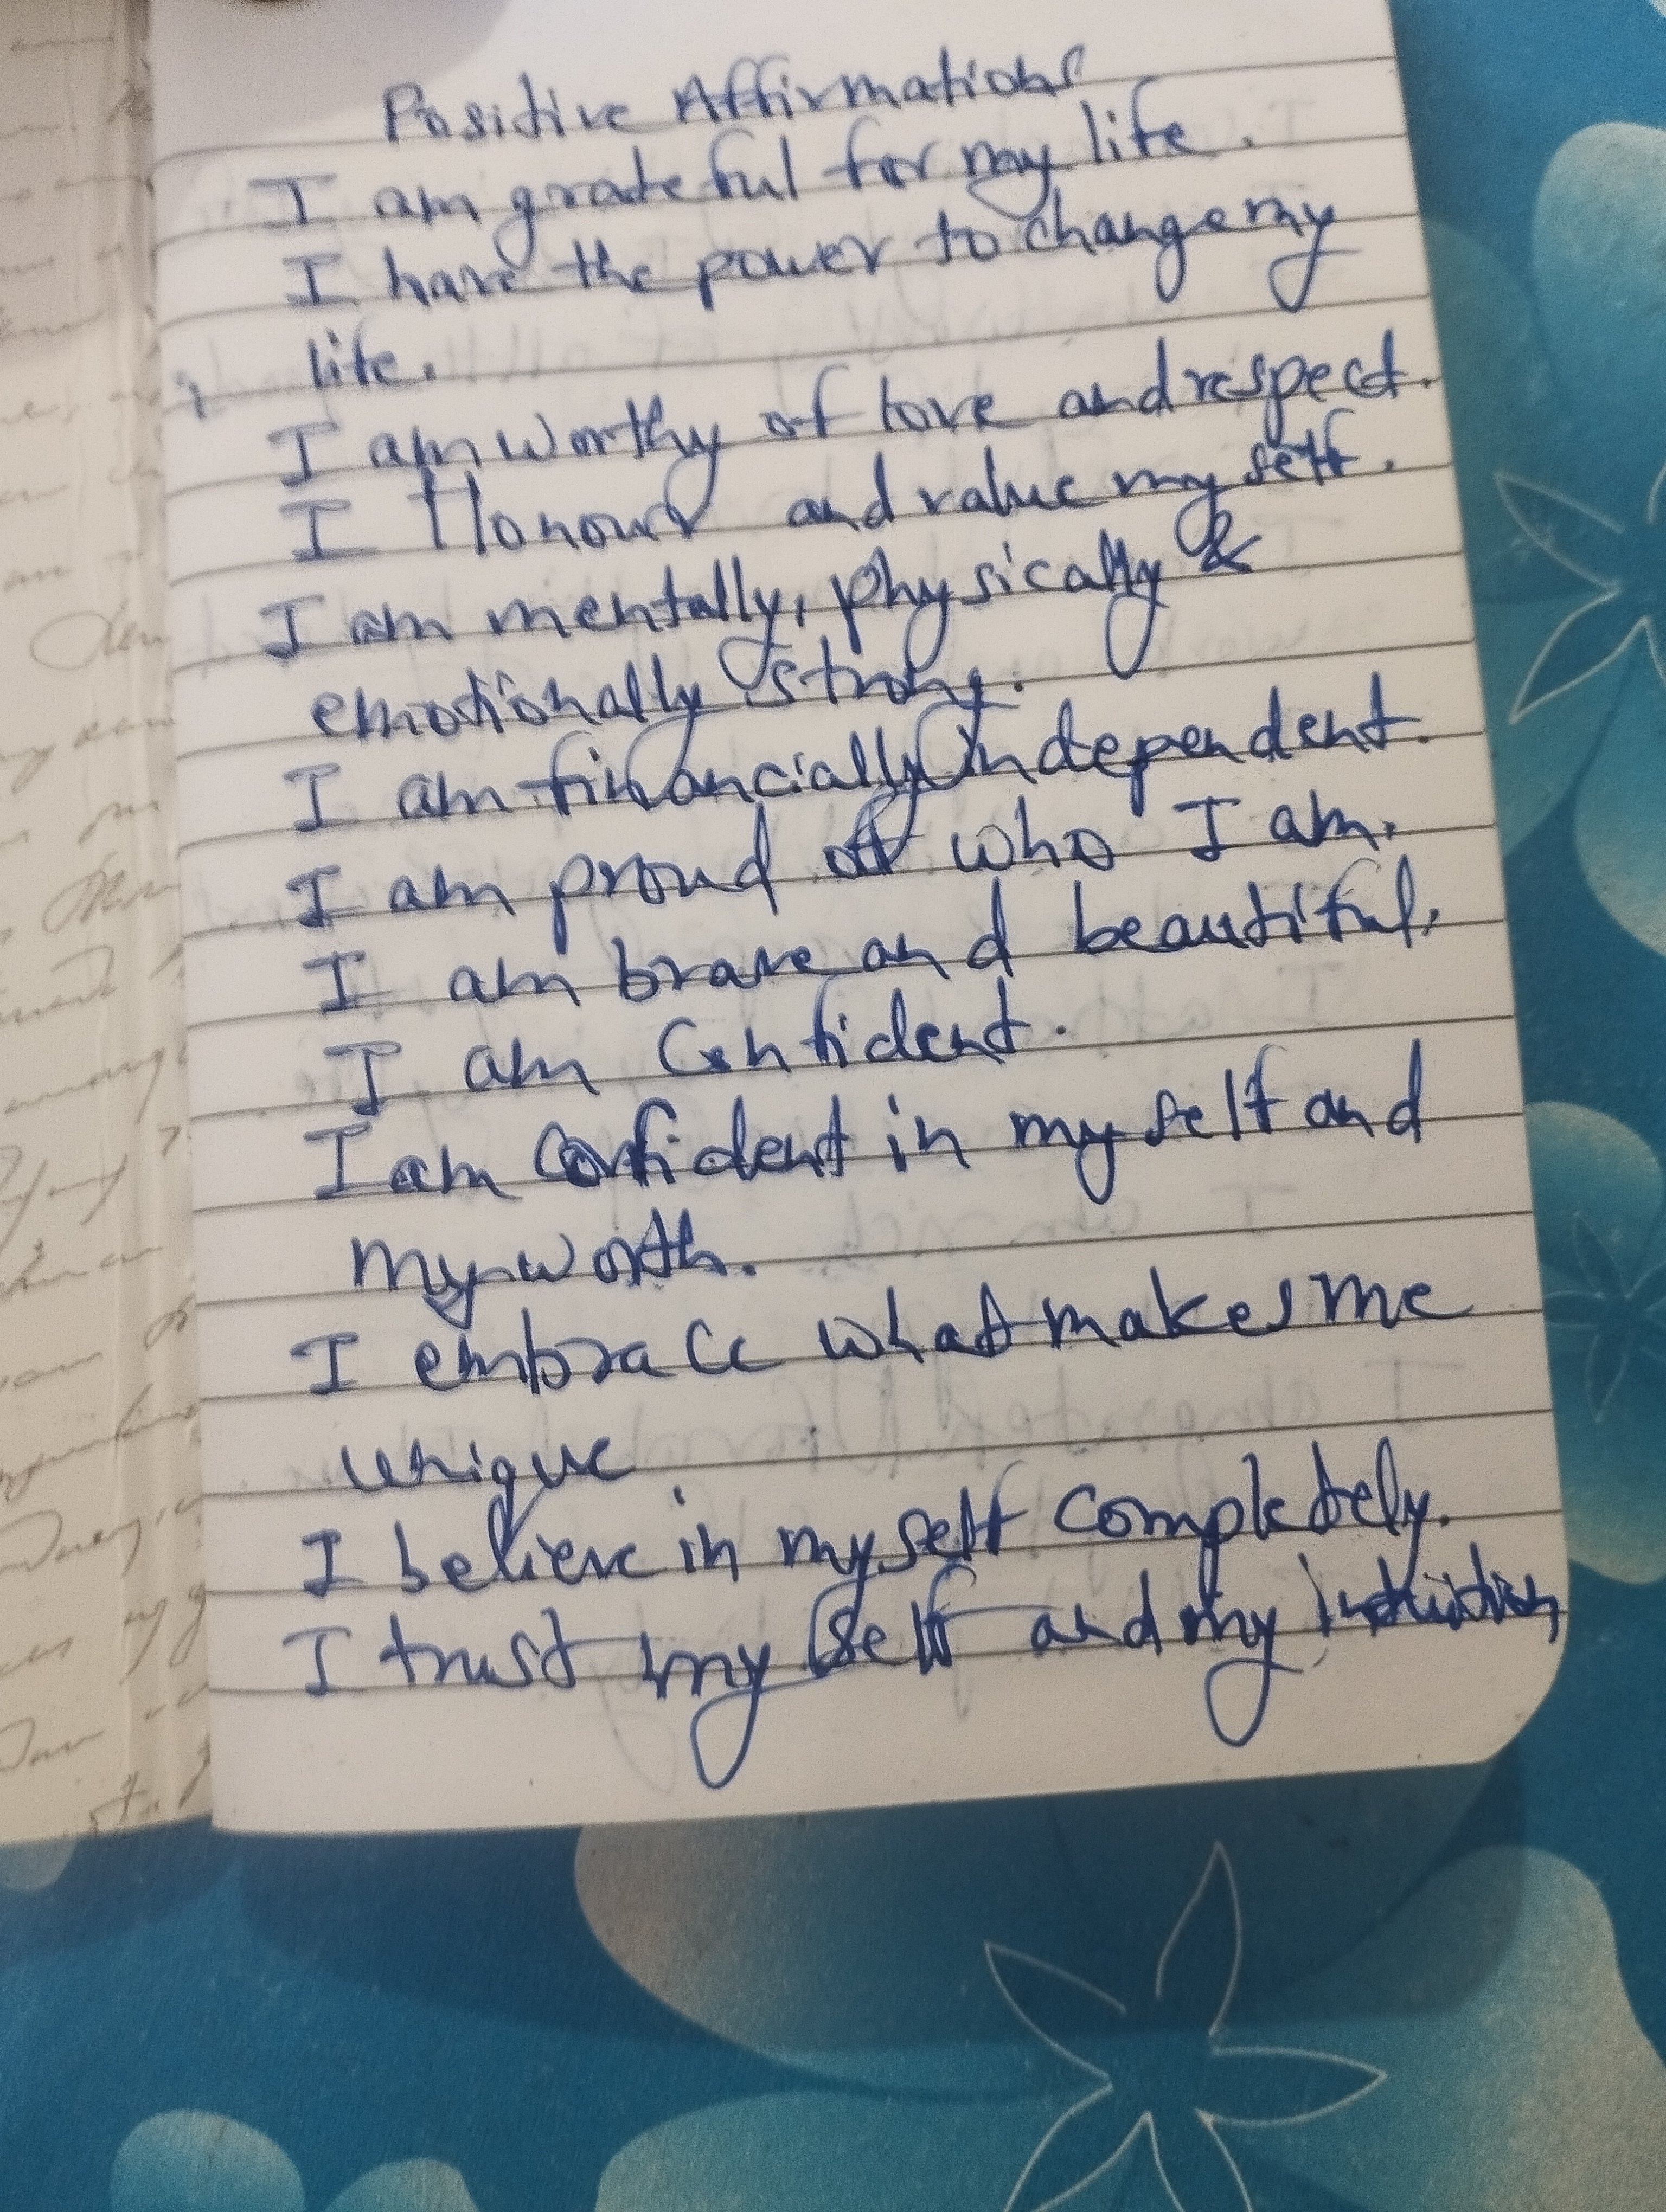 Positive Affirmations
I am grateful for my life.
I have the power to change my
life.
I am worthy of love and respect.
I Honour and value my self.
I am mentally, physically &
emotionally strong.
I am financially independent.
I am proud of who I am.
I am brave and beautiful.
I am Confident.
I am Confident in my self and
my worth.
I embrace what makes me
unique
I believe in my self completely.
I trust my self and my intuition